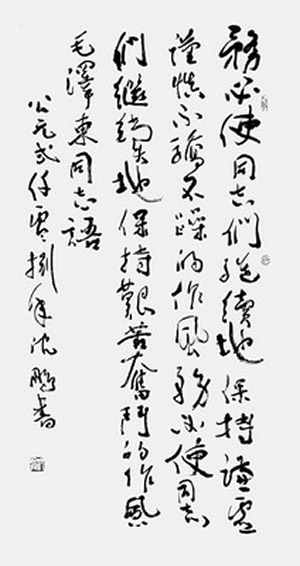 務必使同志們繼續地保持謙虛
謹慎不驕不躁的作風務必使同志
們繼續地保持艱苦奮鬥的作風
毛澤東同志語
公元弍仟零捌年沈鵬書